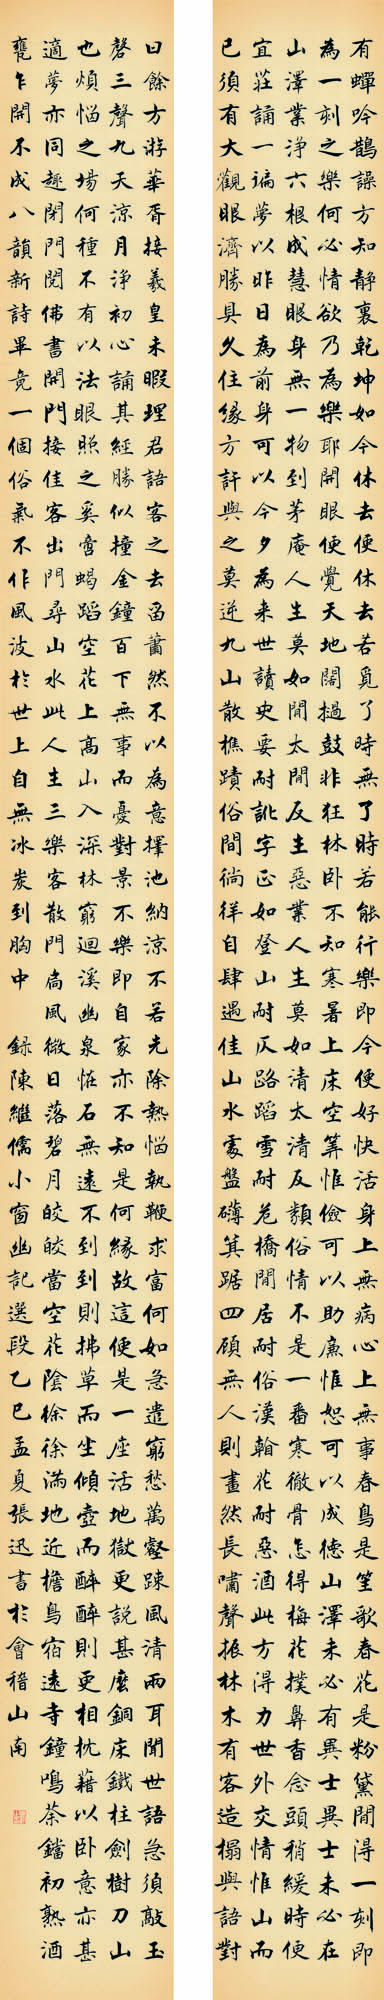 有蟬吟鵲譟方知靜裏乾坤如今休去便休去若覓了時無了時若能行樂即今便好快活身上無病心上無事春鳥是笙歌春花是粉黛閒得一刻即
為一刻之樂何必情欲乃為樂耶開眼便覺天地闊撾鼓非狂林臥不知寒暑上床空筭惟儉可以助廉惟恕可以成德山澤未必有異士異士未必在
山澤業淨六根成慧眼身無一物到茅庵人生莫如閒太閒反生惡業人生莫如清太清反類俗情不是一番寒徹骨怎得梅花撲鼻香念頭稍緩時便
宜莊誦一遍夢以昨日為前身可以今夕為来世讀史要耐訛字正如登山耐仄路蹈雪耐危橋閒居耐俗漢翰花耐惡酒此方得力世外交情惟山而
已須有大觀眼濟勝具久住緣方許與之莫逆九山散樵蹟俗間徜徉自肆遇佳山水處盤礴箕踞四顧無人則畫然長嘯聲振林木有客造榻與語對
曰餘方游華胥接羲皇未暇理君語客之去留蕭然不以為意擇池納涼不若先除熱惱執鞭求富何如急遣窮愁萬壑疎風清兩耳聞世語急須敲玉
磬三聲九天涼月淨初心誦其經勝似撞金鐘百下無事而憂對景不樂即自家亦不知是何緣故這便是一座活地獄更說甚麼銅床鐵柱劍樹刀山
也煩惱之場何種不有以法眼照之奚啻蝎蹈空花上高山入深林窮迴溪幽泉怪石無遠不到到則拂草而坐傾壺而醉醉則更相枕藉以臥意亦甚
適夢亦同趣閉門閱佛書開門接佳客出門尋山水此人生三樂客散門扃風微日落碧月皎皎當空花陰徐徐滿地近檐鳥宿遠寺鐘鳴茶鐺初熟酒
甕乍開不成八韻新詩畢竟一個俗氣不作風波於世上自無冰炭到胸中 錄陳繼儒小窗幽記選段乙巳孟夏張迅書於會稽山南